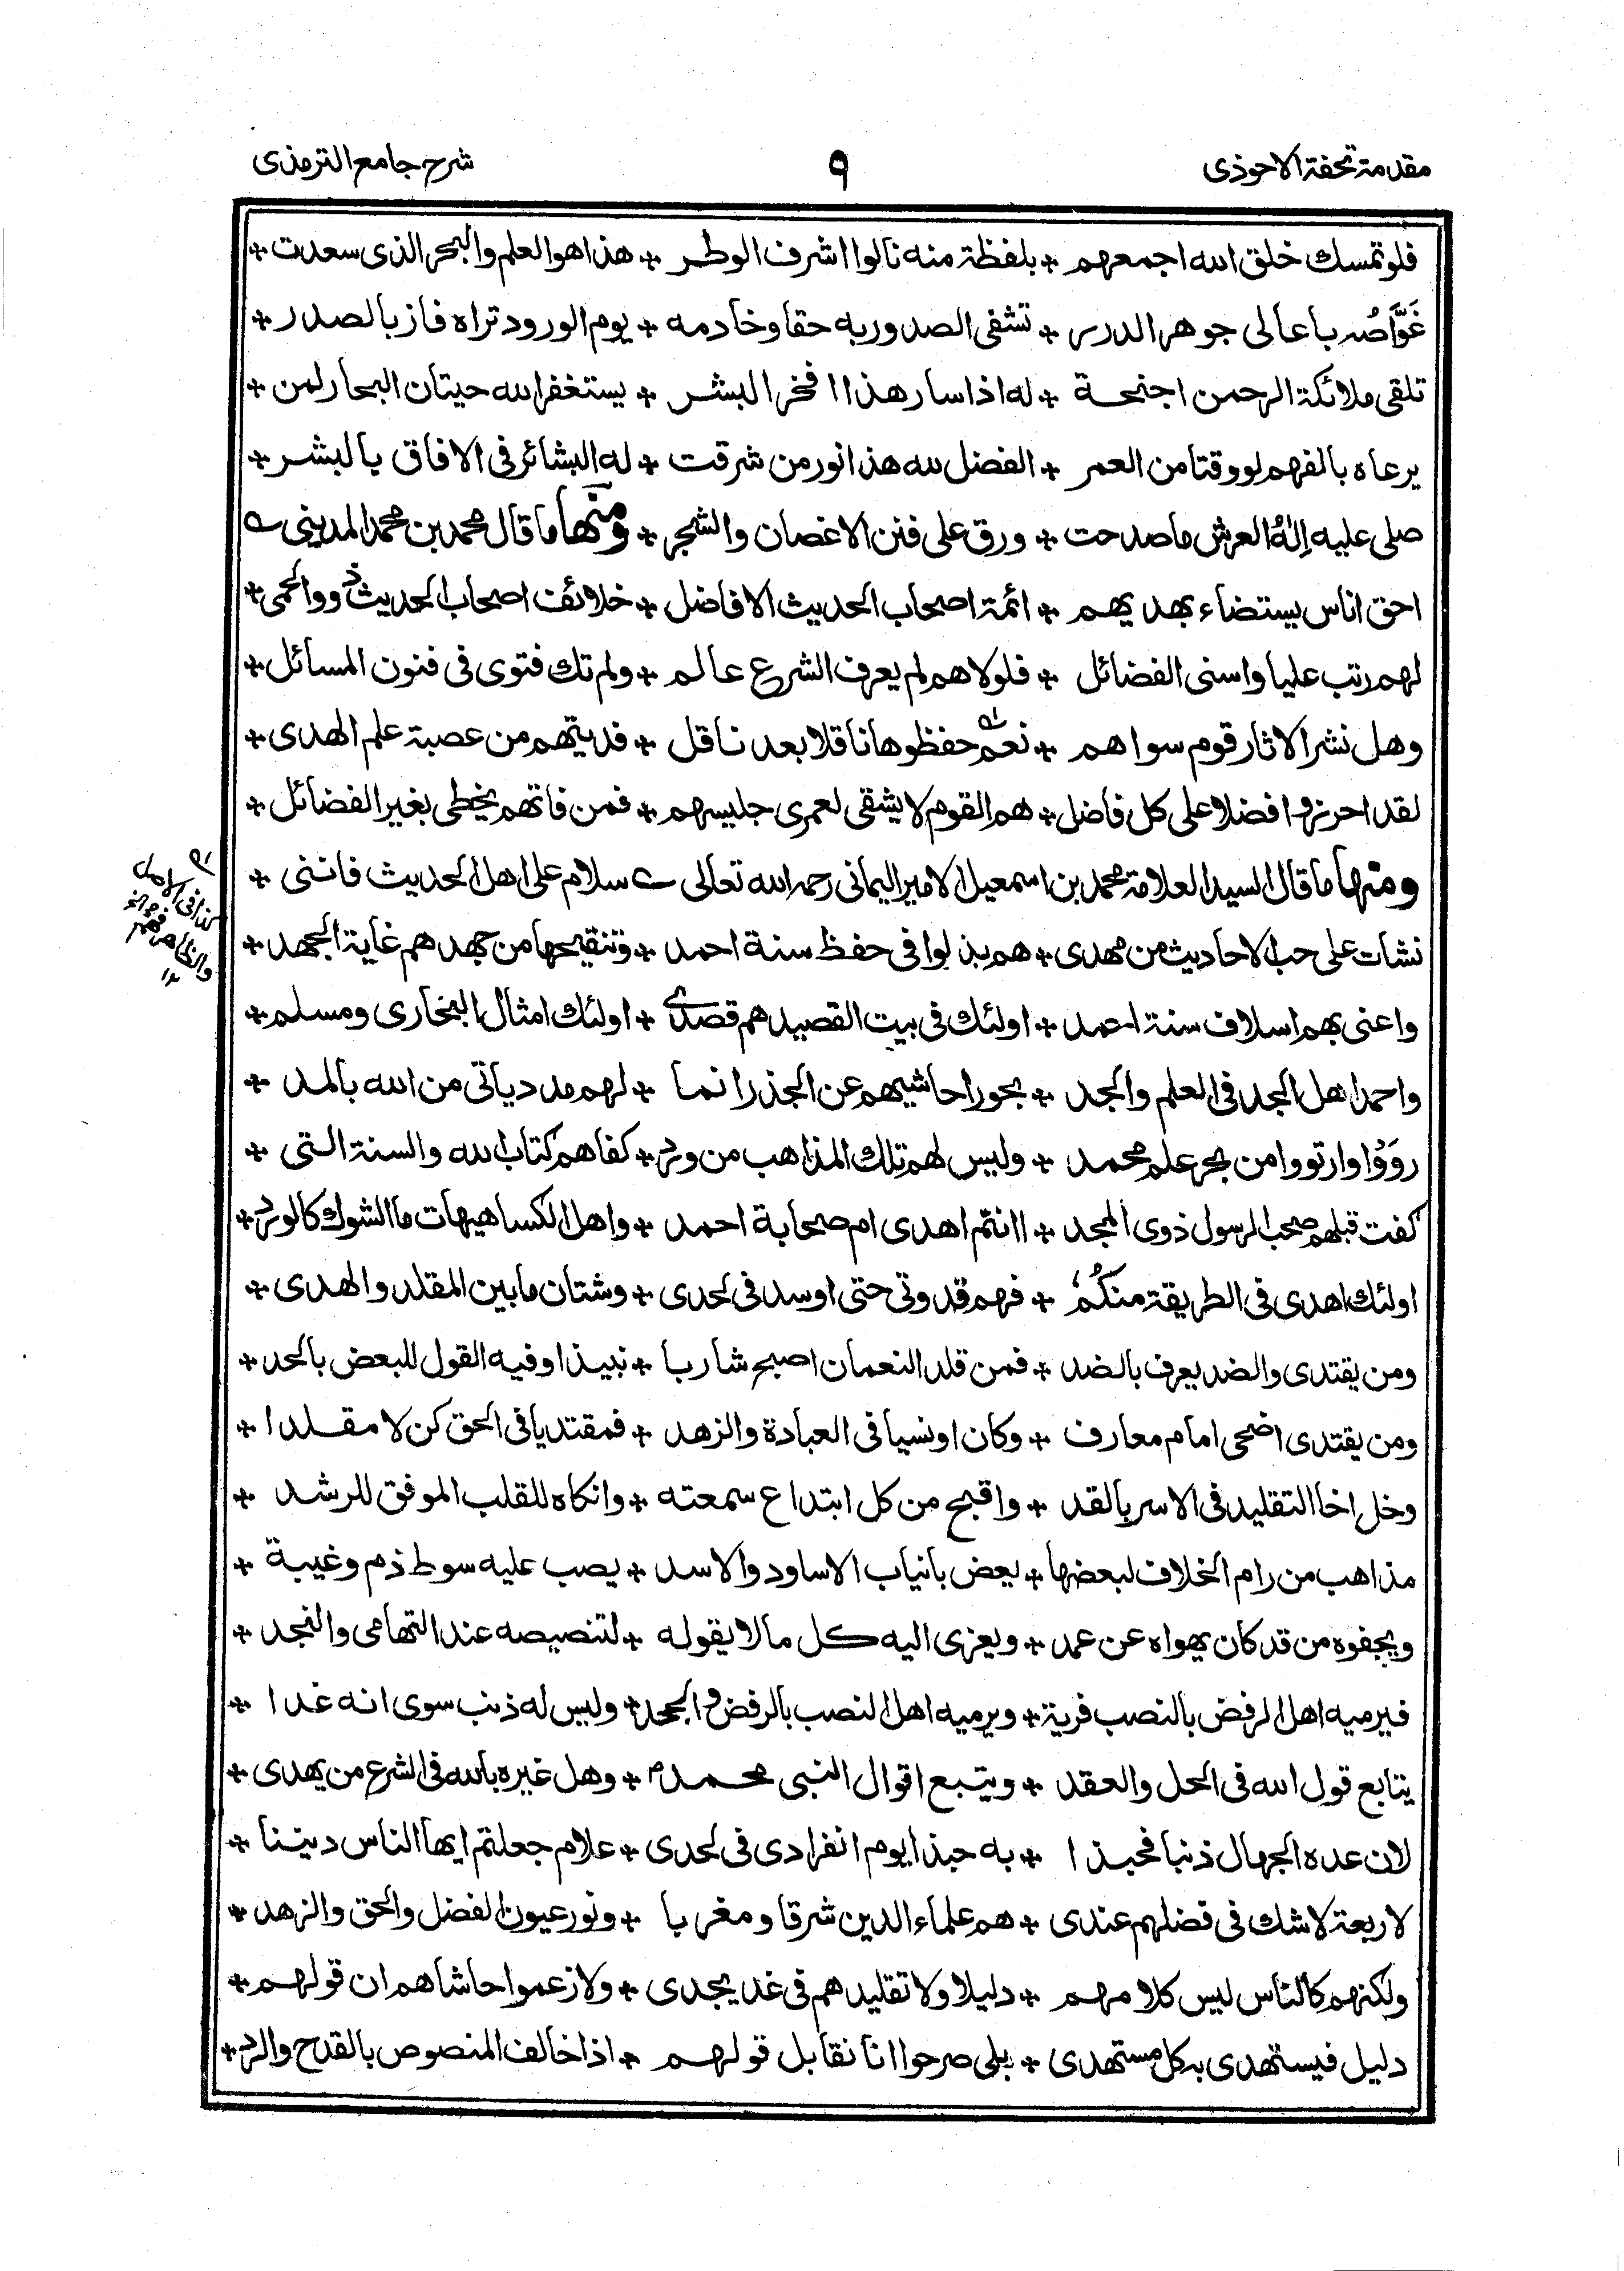 مقدمة تحفة الاحوذی
٩
شرح جامع الترمذی
فلو تمسك خلق الله اجمعهم + بلفظة منه نالوا اشرف الوطر + هذا هو العلم والبحر الذی سعدت +
غَوَّاصُه باعالی جوهر الدرر + تشفی الصدور به حقا وخادمه + يوم الورود تراه فاز بالصدر +
تلقی ملائكة الرحمن اجنحة + له اذا سار هذا افخر البشر + يستغفر الله حيتان البحار لمن +
يرعاه بالفهم لو وقتا من العمر + الفضل لله هذا نور من شرقت + له البشائر فی الافاق بالبشر +
صلی عليه اِلٰهُ العرش ما صدحت + ورق علی فنن الاغصان والشجر + ومنها ما قال محمد بن محمد المدینی ؎
احق اناس يستضاء بهديهم + ائمة اصحاب الحديث الافاضل + خلائف اصحاب الحديث ذوو الحمی +
لهم رتب عليا واسنی الفضائل + فلولاهم لم يعرف الشرع عالم + ولم تك فتوی فی فنون المسائل +
وهل نشر الاثار قوم سواهم + نعم حفظوها ناقلا بعد ناقل + فديتهم من عصبة علم الهدی +
لقد احرزوا فضلا علی كل فاضل + هم القوم لا يشقی لعمری جليسهم + فمن فاتهم يخطی بغير الفضائل +
ومنها ما قال السيد العلامة محمد بن اسمعيل الامير اليمانی رحمه الله تعالی ؎ سلام علی اهل الحديث فاننی +
نشات علی حب الاحاديث من مهدی + هم بذلوا فی حفظ سنة احمد + وتنقيحها من جهدهم غاية الجهد +
واعنی بهم اسلاف سنة احمد + اولئك فی بيت القصيد هم قصدی + اولئك امثال البخاری ومسلم +
واحمد اهل الجد فی العلم والجد + بحور احاشيهم عن الجذر انما + لهم مدد ياتی من الله بالمد +
رَوَوْا وارتووا من بحر علم محمد + وليس لهم تلك المذاهب من ورد + كفاهم كتاب الله والسنة التی +
كفت قبلهم صحب الرسول ذوی المجد + اانتم اهدی ام صحابة احمد + واهل الكسا هيهات ما الشوك كالورد +
اولئك اهدی فی الطريقة منكُمُ + فهم قدوتی حتی اوسد فی لحدی + وشتان ما بين المقلد والهدی +
ومن يقتدی والضد يعرف بالضد + فمن قلد النعمان اصبح شاربا + نبيذا وفيه القول للبعض بالحد +
ومن يقتدی اضحی امام معارف + وكان اونسيا فی العبادة والزهد + فمقتديا فی الحق كن لا مقلدا +
وخل اخا التقليد فی الاسر بالقد + واقبح من كل ابتداع سمعته + وانكاه للقلب الموفق للرشد +
مذاهب من رام الخلاف لبعضها + يعض بانياب الاساود والاسد + يصب عليه سوط ذم وغيبة +
ويجفوه من قد كان يهواه عن عمد + ويعزی اليه كل ما لا يقوله + لتنصيصه عند التهامی والنجد +
فيرميه اهل الرفض بالنصب فرية + ويرميه اهل النصب بالرفض والجحد + وليس له ذنب سوی انه غدا +
يتابع قول الله فی الحل والعقد + ويتبع اقوال النبی محمد + وهل غيره بالله فی الشرع من يهدی +
لان عده الجهال ذنبا فحبذا + به حبذا يوم انفرادی فی لحدی + علام جعلتم ايها الناس ديننا +
لاربعة لاشك فی فضلهم عندی + هم علماء الدين شرقا ومغربا + ونور عيون الفضل والحق والزهد +
ولكنهم كالناس ليس كلامهم + دليلا ولا تقليدهم فی غد يجدی + ولا زعموا حاشاهم ان قولهم +
دليل فيستهدی به كل مستهدی + بلی صرحوا انا نقابل قولهم + اذا خالف المنصوص بالقدح والرد +
كذا فی الاصل
والظاهر هم
١٢